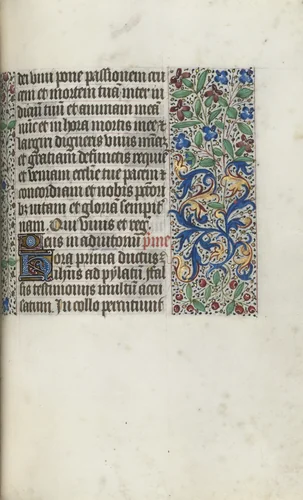 dei vivi pone passionem cru
cem et mortem tuã inter iu
diciũ tuũ et animam meã
nunc et in hora mortis mee et
largiri digneris vivis miam et
et gratiam defunctis requie
et veniam ecclie tue pacem et
concordiam et nobis pctori
bz vitam et gloriã sempit
nam. Qui vivis et reg.
Deus in adiutoriũ prime
Hora prima ductus est
ihus ad pylatũ fal
sis testimoniis multum accu
satum. In collo percutiunt